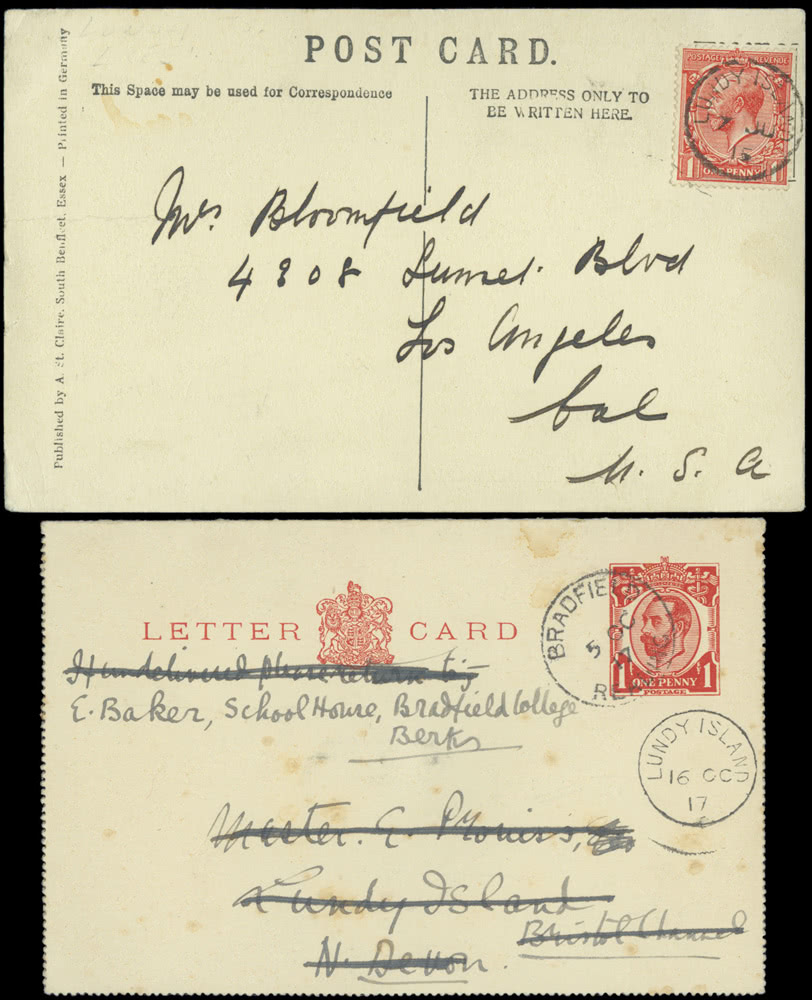 POST CARD.
This Space may be used for Correspondence
THE ADDRESS ONLY TO
BE WRITTEN HERE.
Published by A. St. Claire, South Benfleet, Essex — Printed in Germany
POSTAGE REVENUE
1 ONE PENNY 1
LUNDY ISLAND
7 JU
15
Mrs. Bloomfield
4808 Sunset. Blvd
Los Angeles
Cal
U. S. A
LETTER CARD
1 ONE PENNY 1
POSTAGE
BRADFIELD
5 OC
17
If undelivered please return to:-
E. Baker, School House, Bradfield College
Berks
LUNDY ISLAND
16 OC
17
Master. E.
Lundy Island
Bristol Channel
N. Devon.